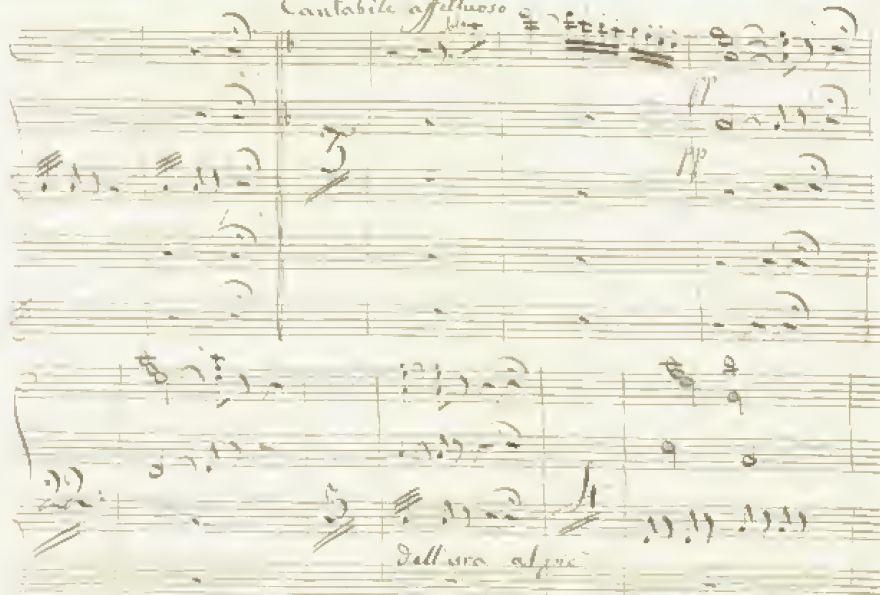 Cantabile affettuoso
pp
pp
3
dell'ara al piè